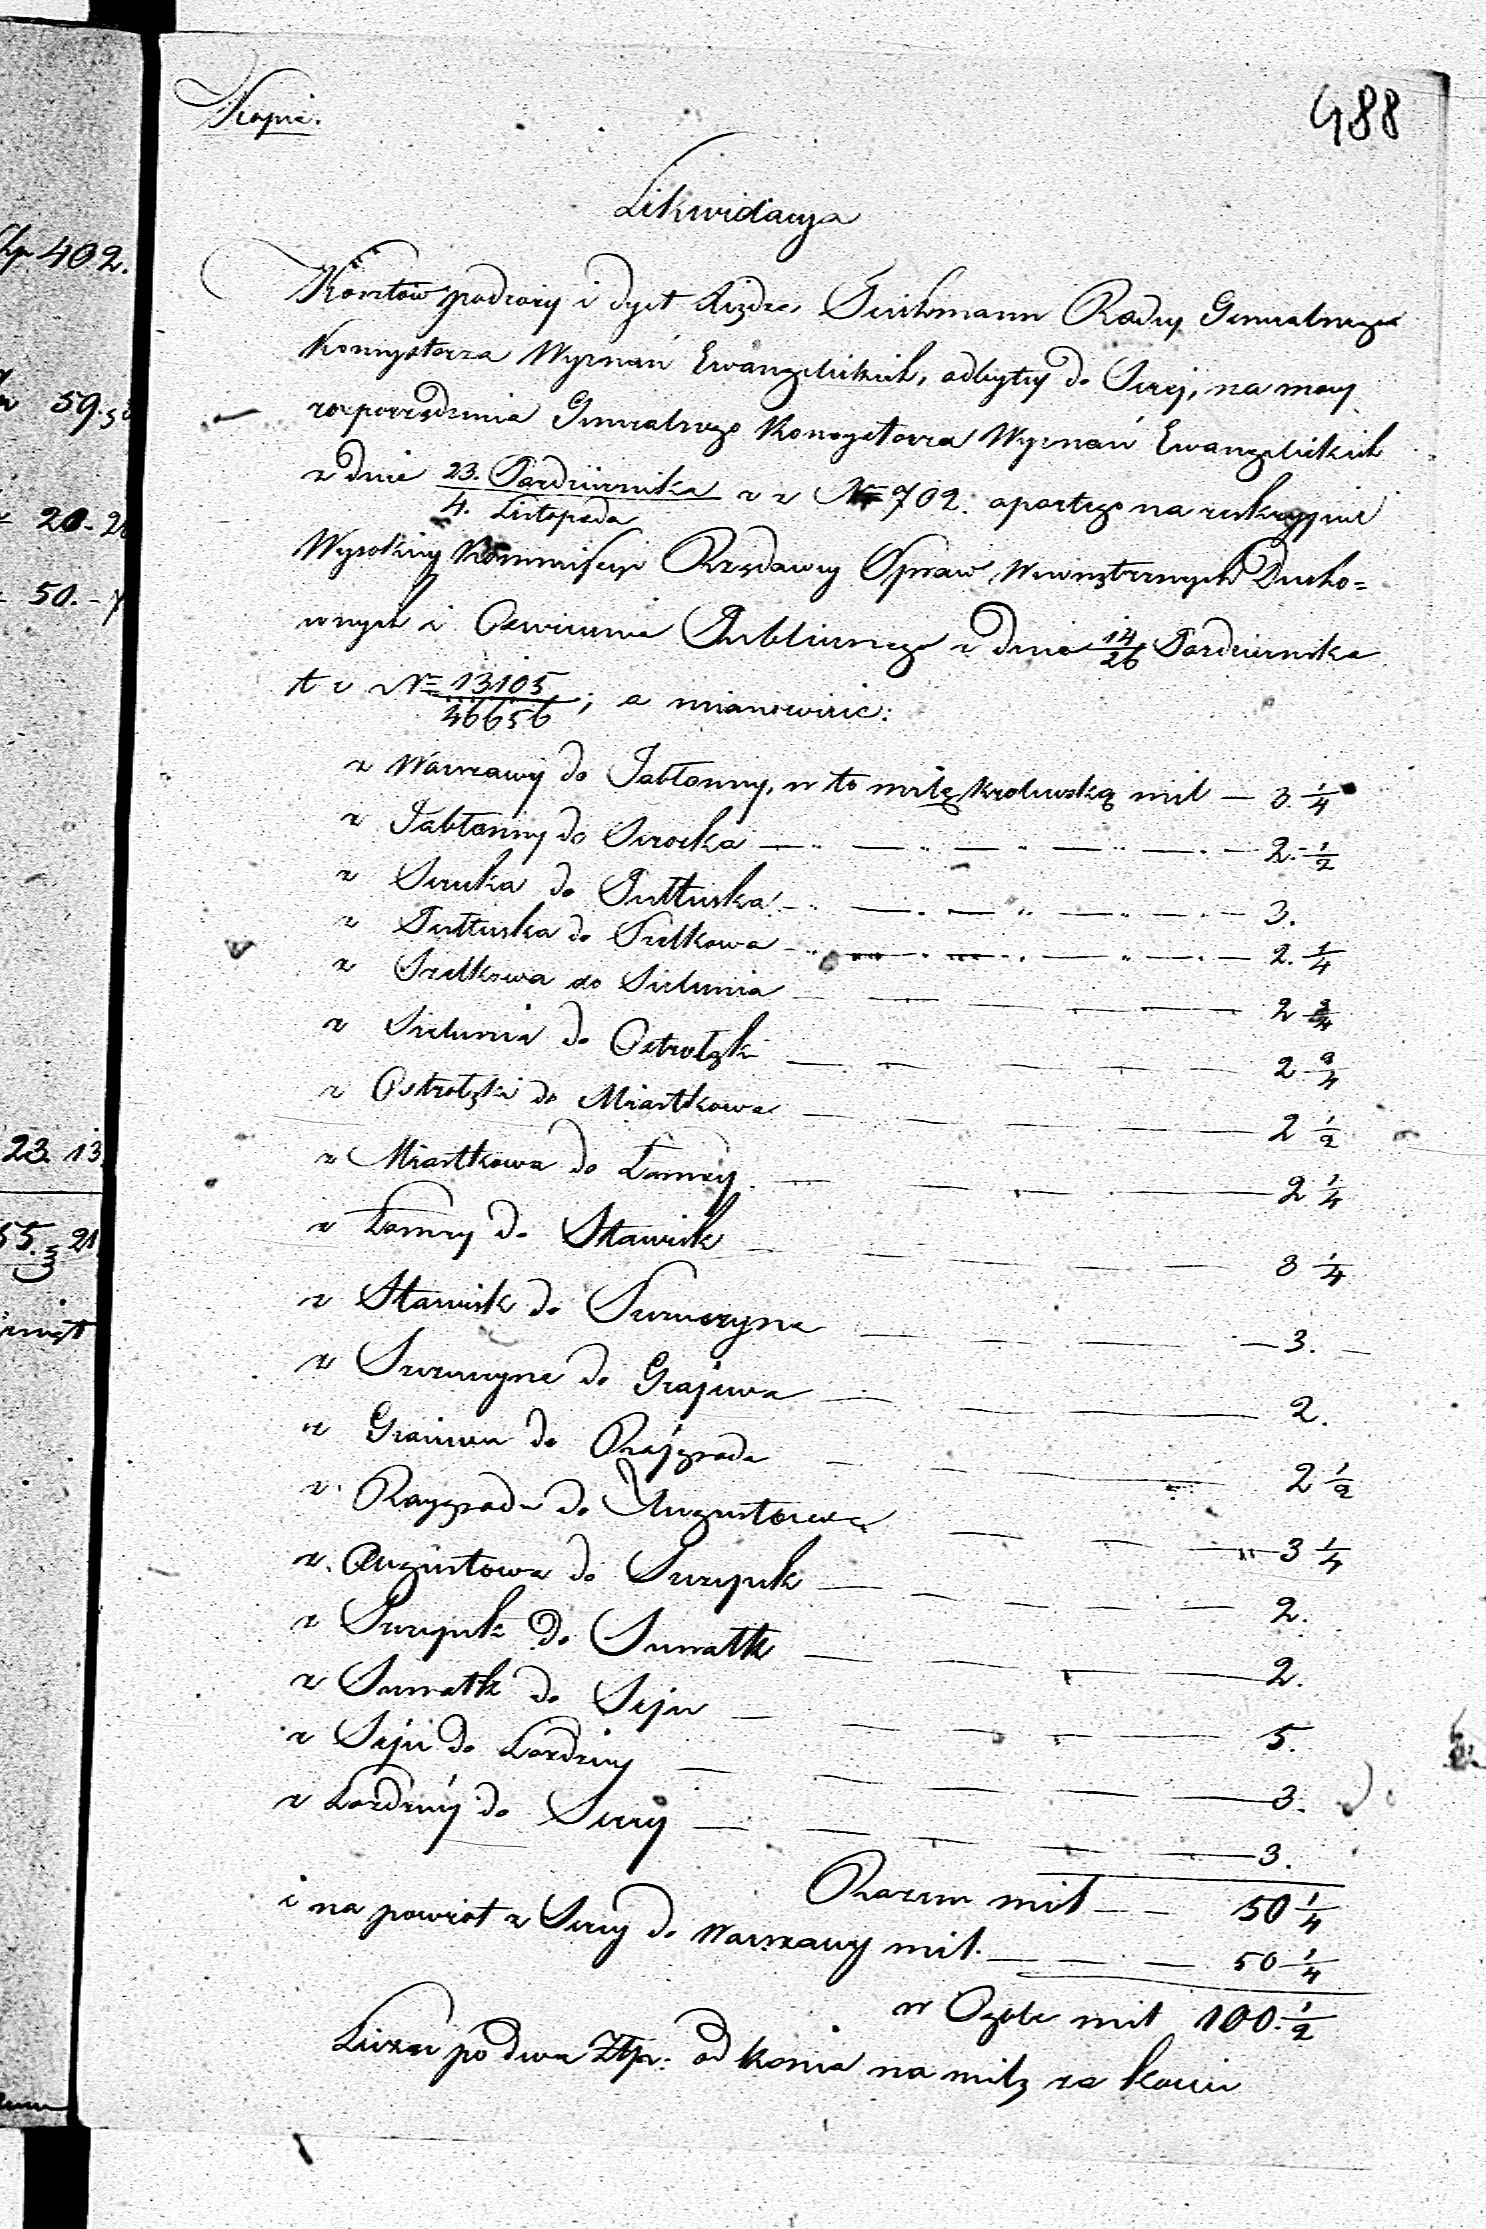 Kopia.
488
Likwidacya
Kosztów podróży i dyet Xiędza Teichmann Radcy Generalnego
Konsystorza Wyznań Ewangelickich, odbytey do Serey, na mocy
rozporządzenia Generalnego Konsystorza Wyznań Ewangelickich
z dnia 23. Pazdziernika / 4. Listopada r z No 702. opartego na reskrypcie
Wysokiey Kommissyi Rządowey Spraw Wewnętrznych Ducho=
wnych i Oswiecenia Publicznego z dnia 14/26 Pazdziernika
t r No 13105/46656; a mianowicie:
z Warszawy do Jabłonny, w to milę Krolewską mil — 3. 1/4
z Jabłonny do Serocka — 2. 1/2
z Serocka do Pułtuska — 3.
z Pułtuska do Szelkowa — 2. 1/4
z Szelkowa do Sielunia — 2 3/4
z Sielunia do Ostrołęki — 2 3/4
z Ostrołęki do Miastkowa — 2 1/2
z Miastkowa do Łomzy — 2 1/4
z Łomzy do Stawisk — 3 1/4
z Stawisk do Szczuczyna — 3. —
z Szczuczyna do Grajewa — 2.
z Grajewa do Rajgroda — 2 1/2
z Raygroda do Augustowa — 3 1/4
z Augustowa do Szczepek — 2.
z Szczepek do Suwałk — 2.
z Suwałk do Sejn — 5.
z Sejn do Łozdziey — 3.
z Łozdziey do Serey — 3.
Razem mil — 50 1/4
i na powrót z Serey do Warszawy mil. — 50 1/4
w Ogóle mil 100. 1/2
Licząc po dwa Złp: od konia na milę za koni
Złp 402.
59.
20.
50.
23. 13
55. 21